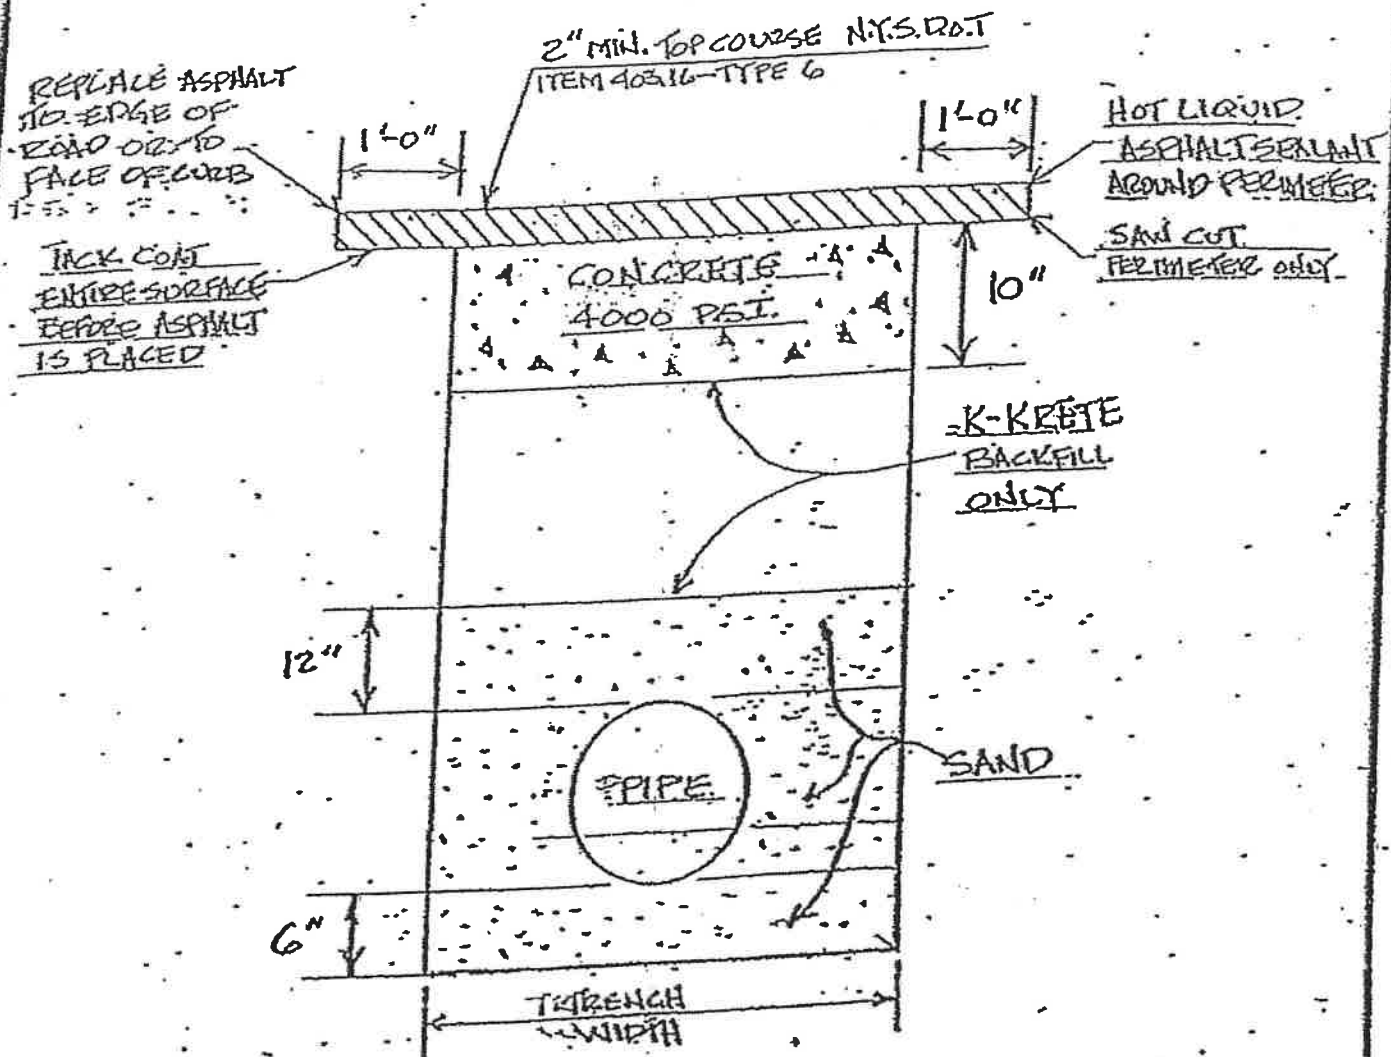 2" MIN. TOP COURSE N.Y.S.D.O.T
ITEM 403.16-TYPE 6
REPLACE ASPHALT
TO EDGE OF
ROAD OR TO
FACE OF CURB
1'-0"
1'-0"
HOT LIQUID
ASPHALT SEALANT
AROUND PERIMETER
SAW CUT
PERIMETER ONLY
TACK COAT
ENTIRE SURFACE
BEFORE ASPHALT
IS PLACED
CONCRETE
4000 P.S.I.
10"
K-KRETE
BACKFILL
ONLY
12"
PIPE
SAND
6"
TRENCH
WIDTH